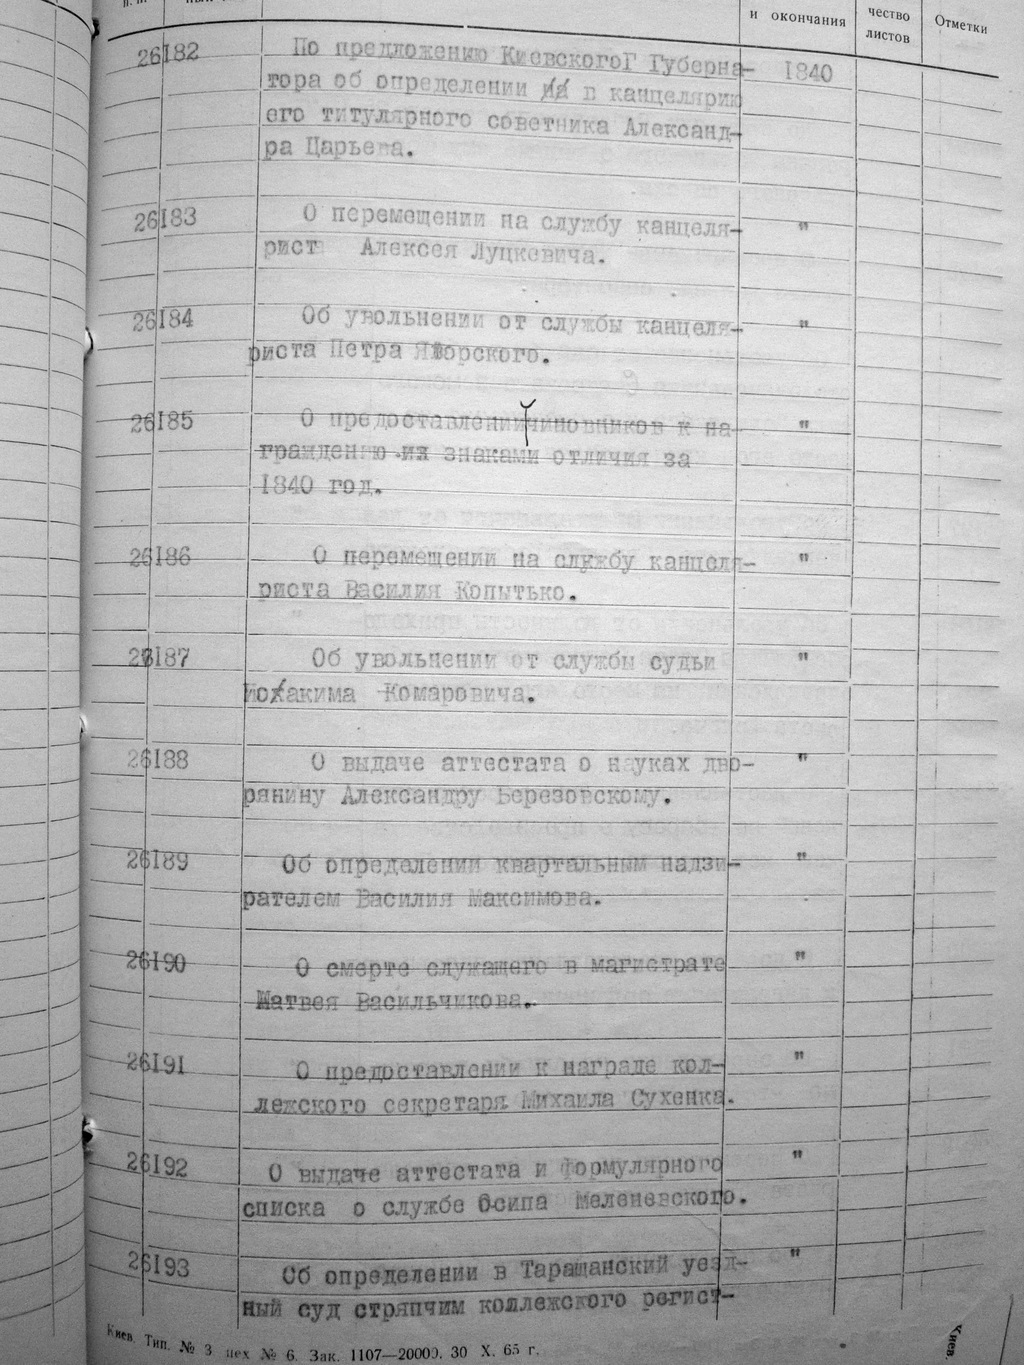 и окончания
чество
листов
Отметки
26182 По предложению КиевскогоГ Губерна- 1840
тора об определении в канцелярию
его титулярного советника Александ-
ра Царьева.
26183 О перемещении на службу канцеля- "
рист Алексея Луцкевича.
26184 Об увольнении от службы канцеля- "
риста Петра Яворского.
26185 О предоставлении чиновников к на- "
граждению их знаками отличия за
1840 год.
26186 О перемещении на службу канцеля- "
риста Василия Копытько.
26187 Об увольнении от службы судьи "
Иоакима Комаровича.
26188 О выдаче аттестата о науках дво- "
рянину Александру Березовскому.
26189 Об определении квартальным надзи- "
рателем Василия Максимова.
26190 О смерте служащего в магистрате "
Матвея Васильчикова.
26191 О предоставлении к награде кол- "
лежского секретаря Михаила Сухенка.
26192 О выдаче аттестата и формулярного "
списка о службе Осипа Меленевского.
26193 Об определении в Таращанский уезд- "
ный суд стряпчим коллежского регист-
Киев. Тип. № 3 цех № 6. Зак. 1107—20000. 30 X. 65 г.
Киев